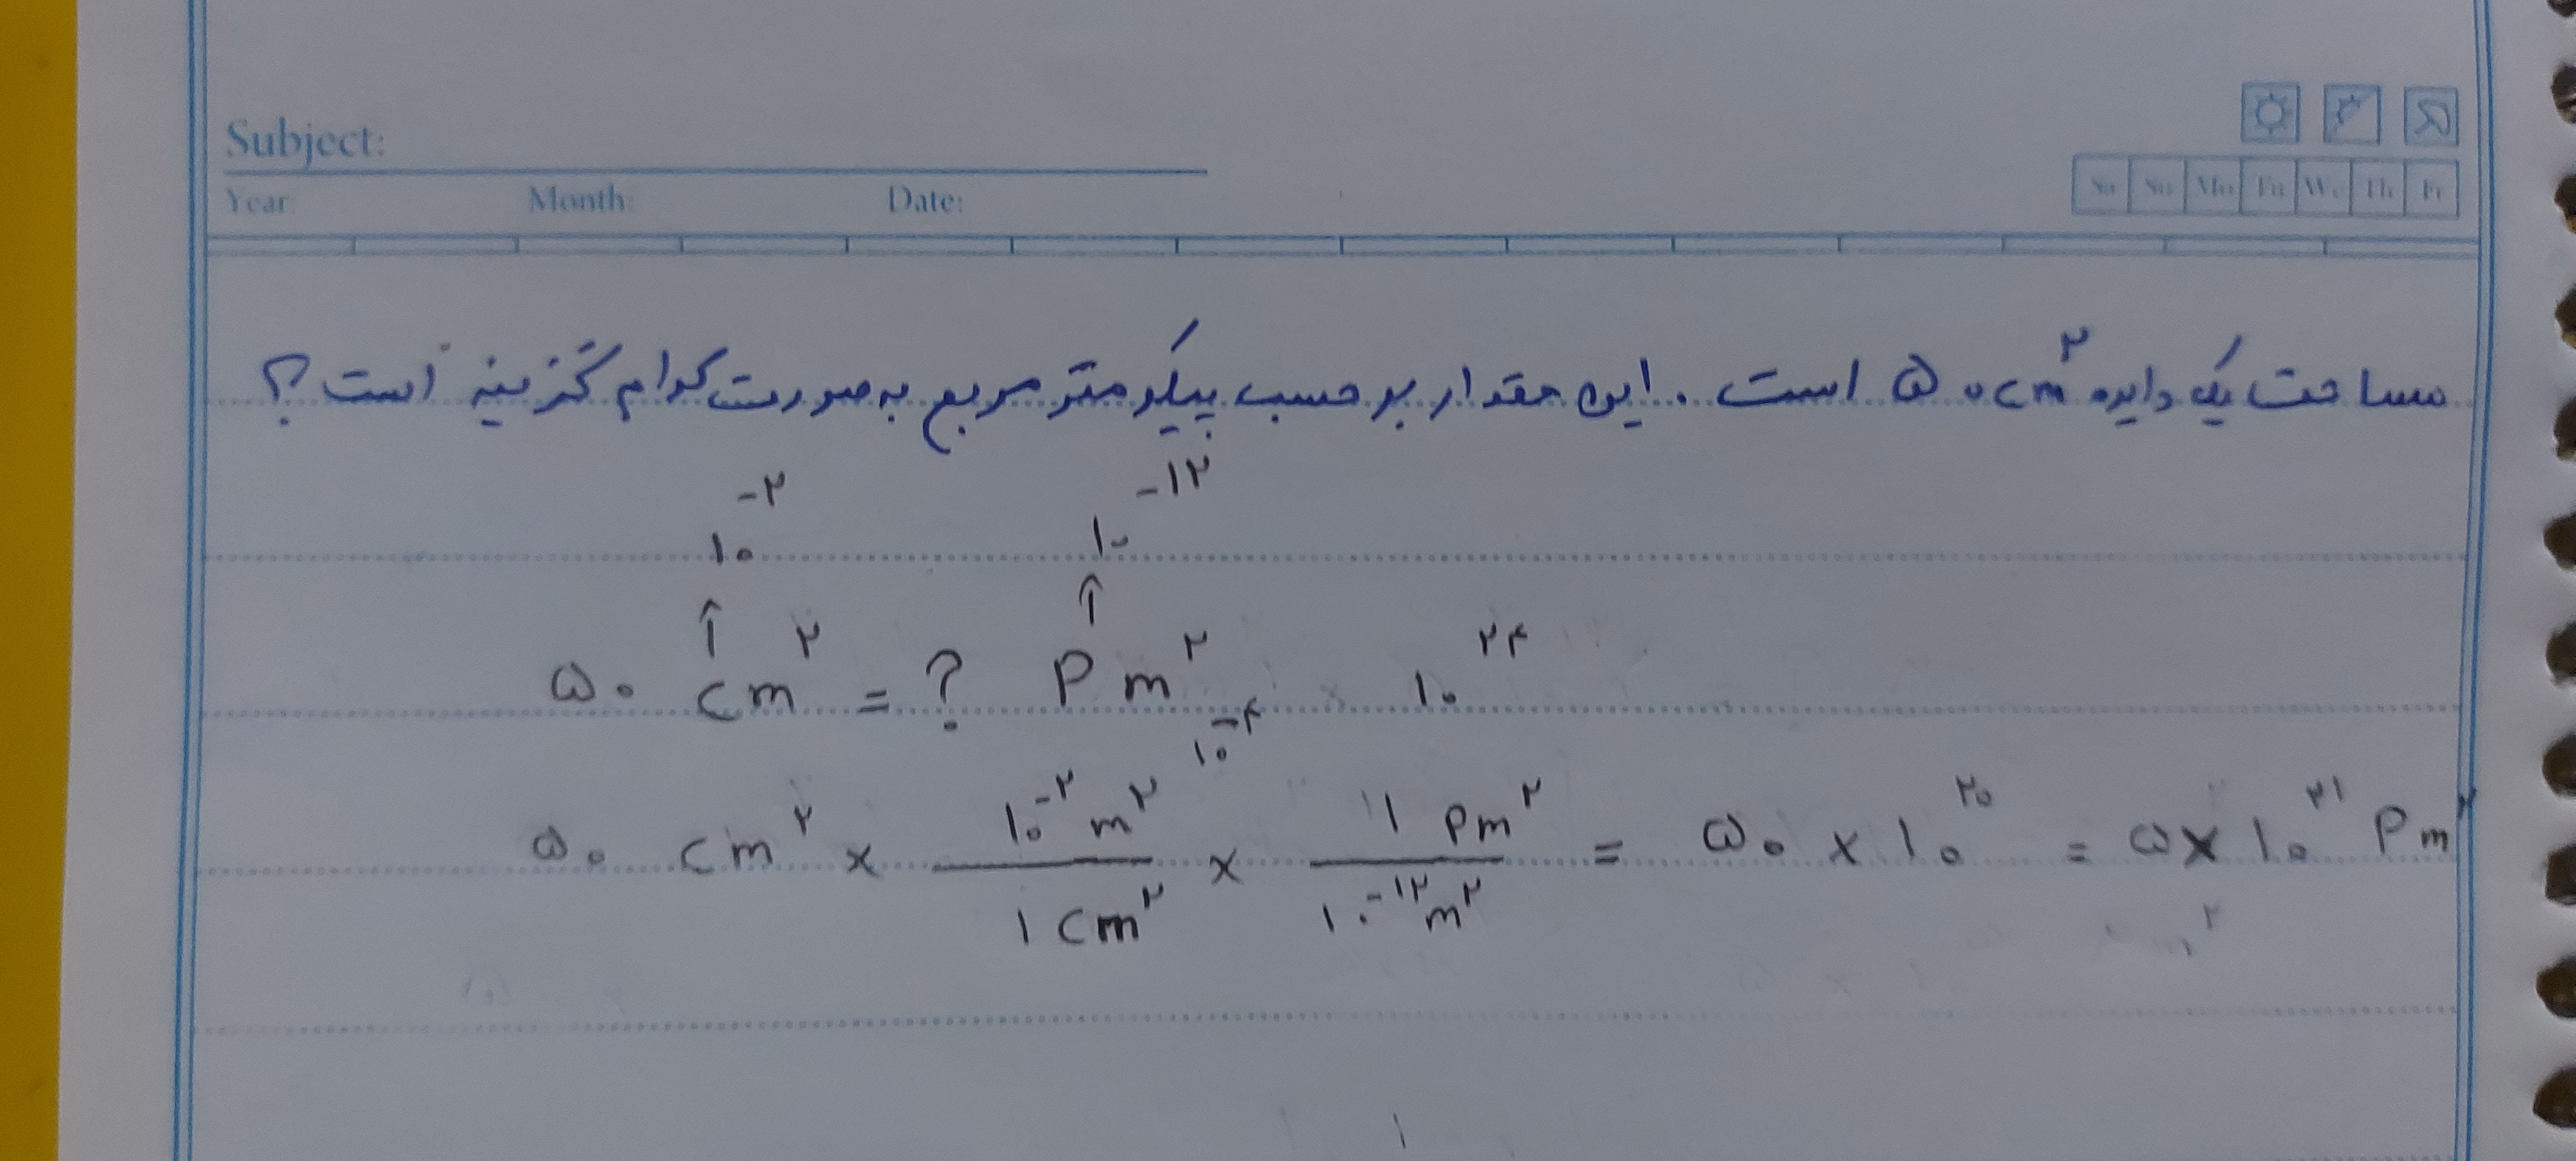 Subject:
Year: Month: Date:
Sa Su Mo Tu We Th Fr
مساحت یک دایره ۵۰cm^۲ است. این مقدار بر حسب پیکومتر مربع به صورت کدام گزینه است؟
۱۰^-۲ ۱۰^-۱۲
۵۰ cm^۲ = ? Pm^۲
۱۰^-۴ ۱۰^۲۴
۵۰ cm^۲ × ۱۰^-۲ m^۲ / ۱ cm^۲ × ۱ Pm^۲ / ۱۰^-۱۲ m^۲ = ۵۰ × ۱۰^۲۰ = ۵ × ۱۰^۲۱ Pm^۲